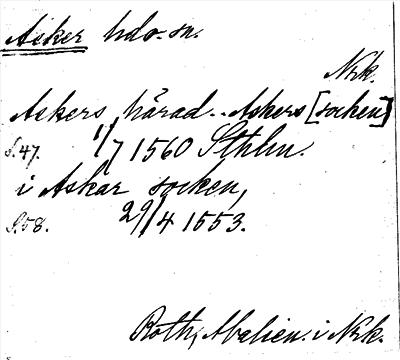 Asker hdo. sn.
Nrk.
Askers härad.. Askers [socken]
S. 47. 1/7 1560 Sthlm.
i Askar socken,
S. 58. 29/4 1553.
Roth, i Nrk.